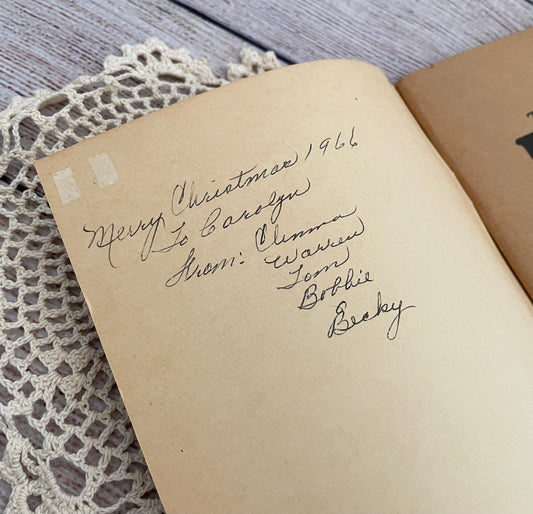 Merry Christmas 1966
To Carolyn
From: Clemma
Warren
Tom
Bobbie
Becky